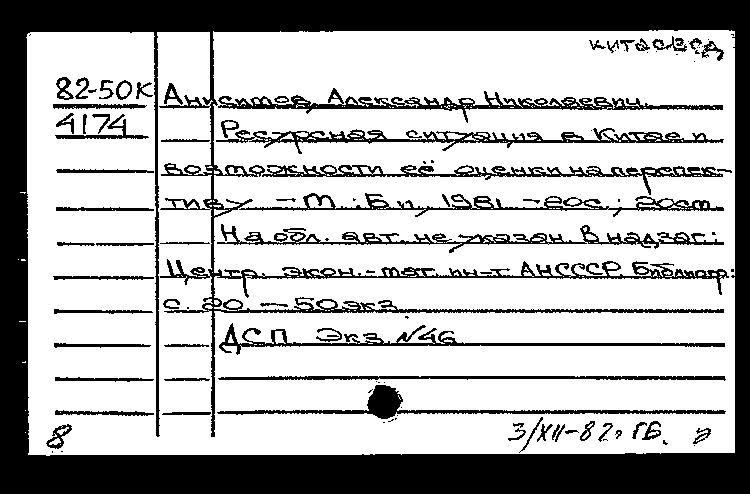 китаевед
82-50К Анисимов, Александр Николаевич.
4174 Ресурсная ситуация в Китае и
возможности её оценки на перспек-
тиву. – М.: Б.и., 1981. – 20с.; 20см.
На обл. авт. не указан. В надзаг.:
Центр. экон.-мат. ин-т АНСССР. Библиогр.:
с. 20. – 50 экз.
ДСП. Экз. №46
8 3/XII-82г. ГБ.